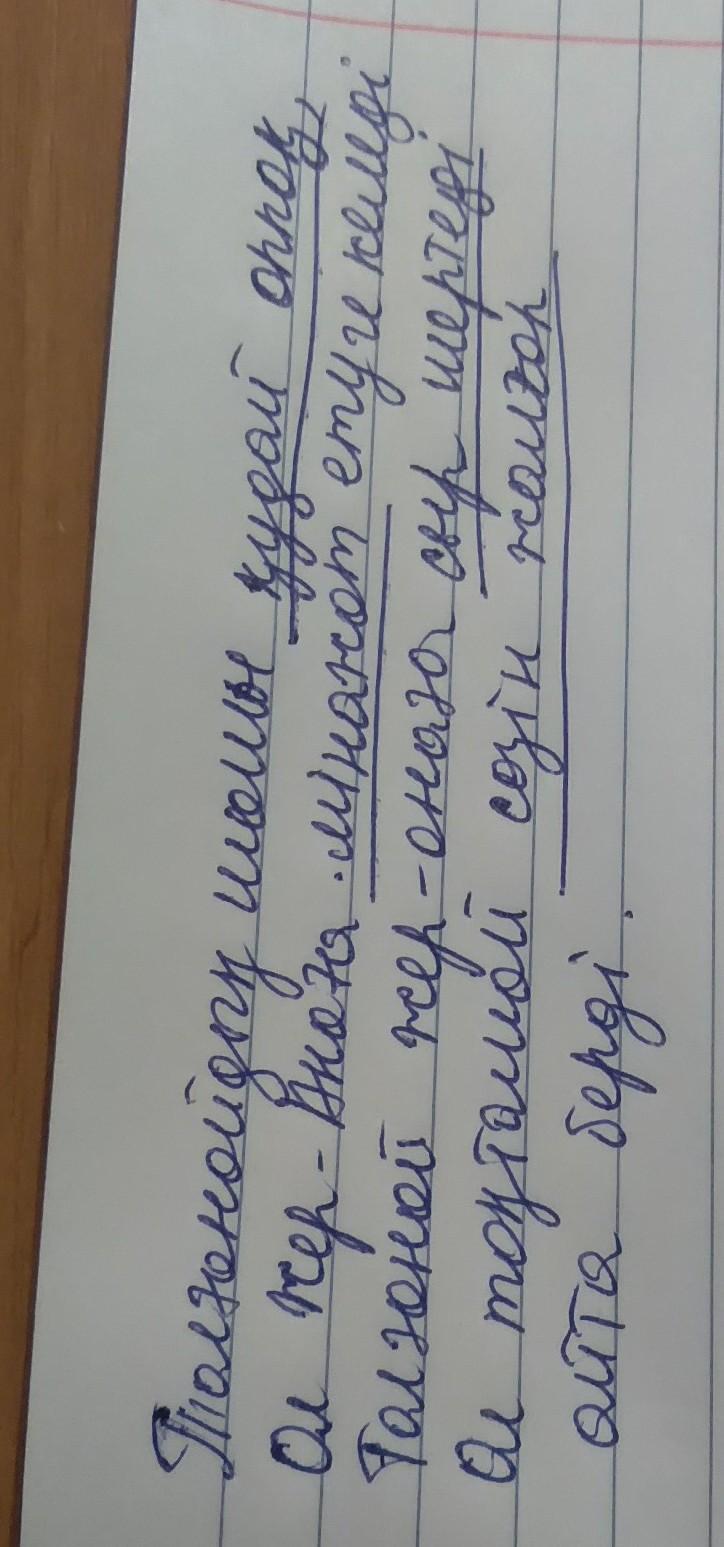 Толғонойдың шашы қудай аппақ,
Ол жер-Анаға мінажат етуге келді
Толғонай жер-анаға сыр шертеді
Ол тоқтамай сөзін жалғап
айта берді.